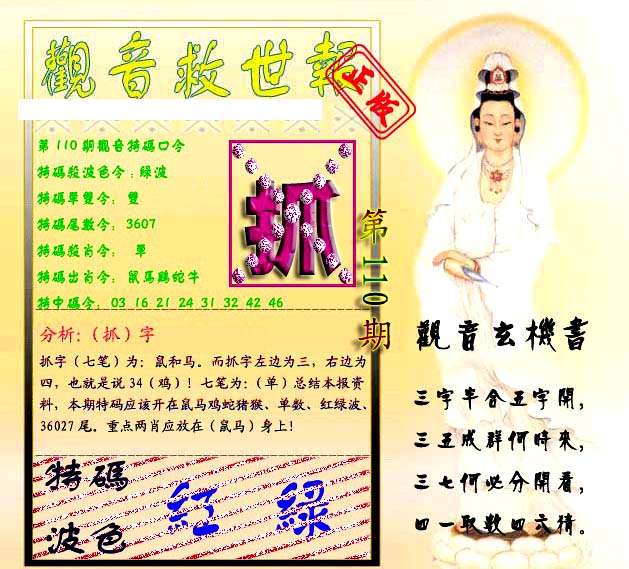 觀音救世報
正版
第110期觀音特碼口令
特碼殺波色令：綠波
特碼單雙令： 雙
特碼尾數令： 3607
特碼殺肖令： 單
特碼出肖令： 鼠馬鷄蛇牛
特中碼令： 03 16 21 24 31 32 42 46
抓
第110期
分析:（抓）字
抓字（七笔）为：鼠和马。而抓字左边为三，右边为
四，也就是说34（鸡）！七笔为：（单）总结本报资
料，本期特码应该开在鼠马鸡蛇猪猴、单数、红绿波、
36027尾。重点两肖应放在（鼠马）身上！
特碼
波色
红 绿
觀音玄機書
三字半合五字開，
三五成群何時來，
三七何必分開看，
四一取數四六猜。